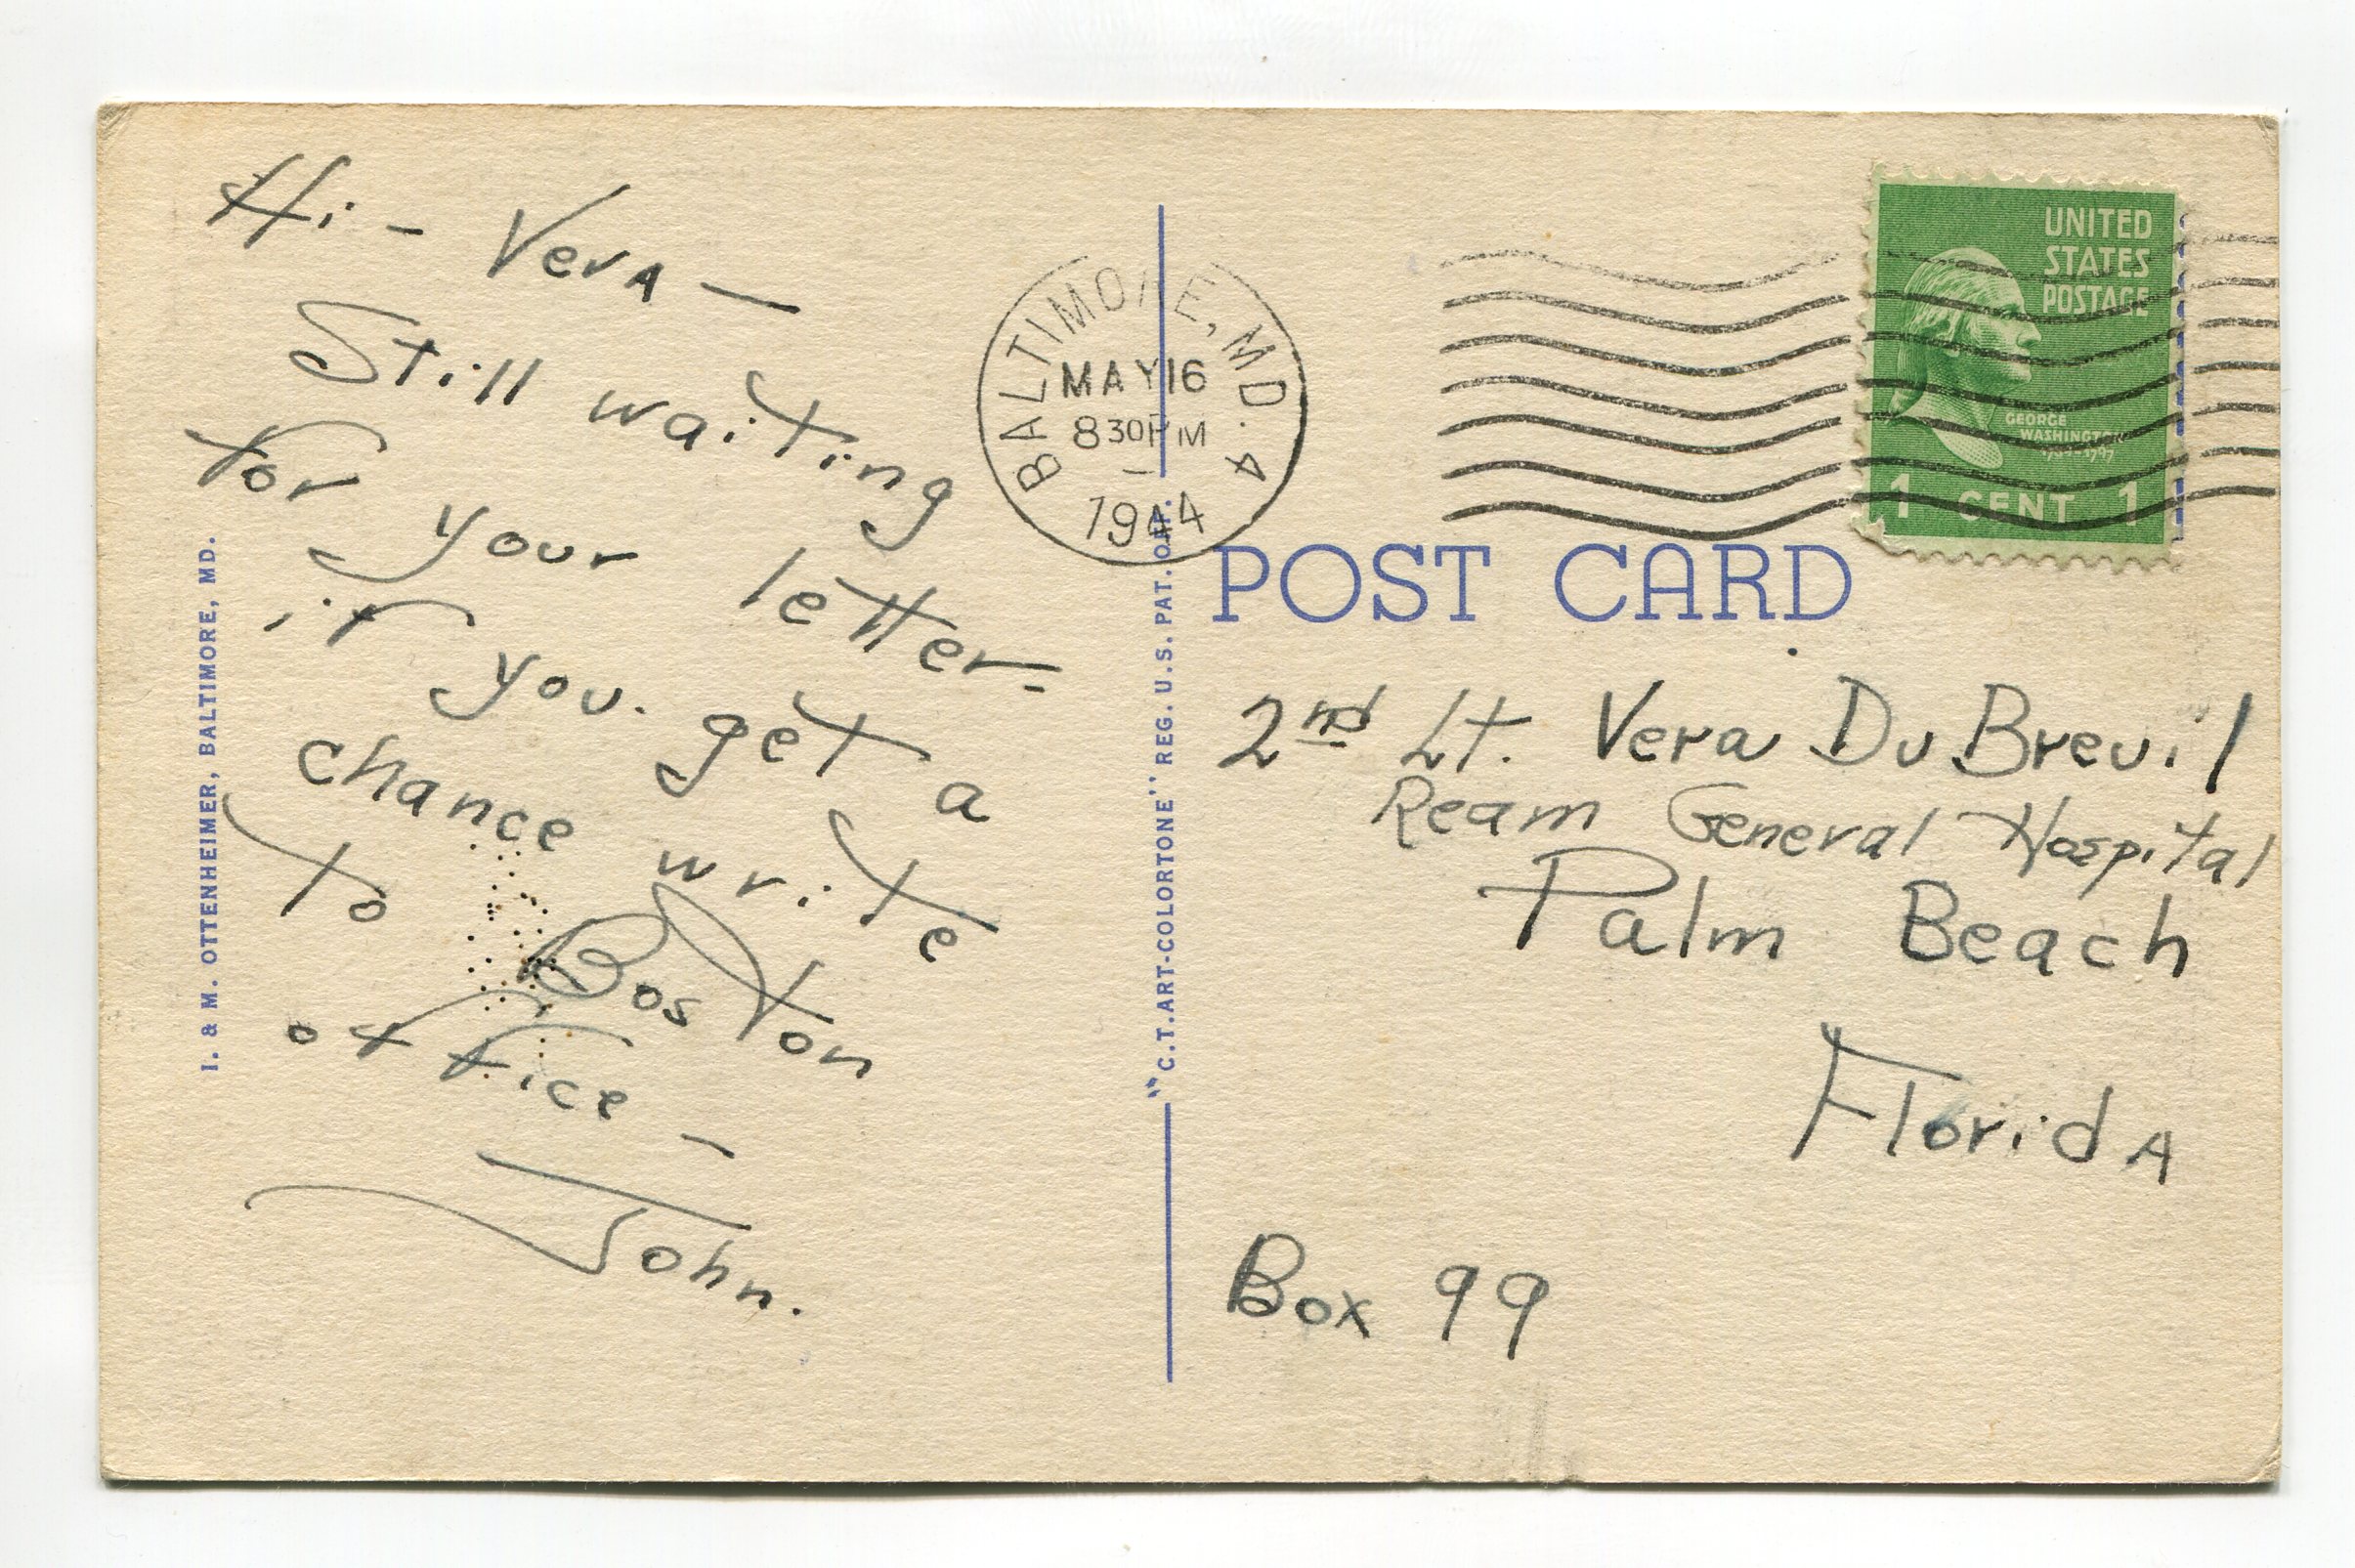 Hi - Vera -
Still waiting
for your letter -
if you get a
chance write
to Boston
office -
John.
I. & M. OTTENHEIMER, BALTIMORE, MD.
BALTIMORE, MD. 4
MAY 16
8 30 PM
1944
"C.T. ART-COLORTONE" REG. U.S. PAT. OFF.
UNITED
STATES
POSTAGE
GEORGE
WASHINGTON
1 CENT 1
POST CARD
2nd Lt. Vera DuBreuil
Ream General Hospital
Palm Beach
Florida
Box 99